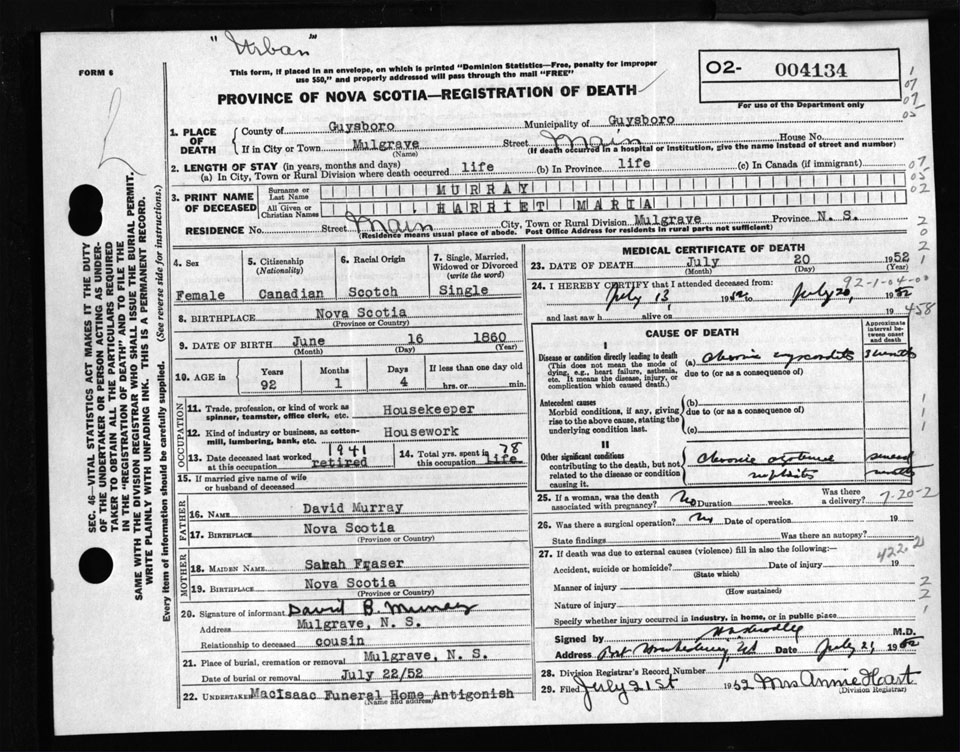 "Urban"
FORM 6
This form, if placed in an envelope, on which is printed "Dominion Statistics—Free, penalty for improper
use $50," and properly addressed will pass through the mail "FREE"
O2- 004134
For use of the Department only
PROVINCE OF NOVA SCOTIA—REGISTRATION OF DEATH
1. PLACE OF DEATH
County of Guysboro Municipality of Guysboro
If in City or Town Mulgrave (Name) Street Main House No.
(If death occurred in a hospital or institution, give the name instead of street and number)
2. LENGTH OF STAY (in years, months and days)
(a) In City, Town or Rural Division where death occurred life (b) In Province life (c) In Canada (if immigrant)
3. PRINT NAME OF DECEASED
Surname or Last Name MURRAY
All Given or Christian Names HARRIET MARIA
RESIDENCE No. Street Main City, Town or Rural Division Mulgrave Province N. S.
(Residence means usual place of abode. Post Office Address for residents in rural parts not sufficient)
4. Sex
Female
5. Citizenship (Nationality)
Canadian
6. Racial Origin
Scotch
7. Single, Married, Widowed or Divorced (write the word)
Single
8. BIRTHPLACE Nova Scotia
(Province or Country)
9. DATE OF BIRTH June 16 1860
(Month) (Day) (Year)
10. AGE in Years Months Days If less than one day old
92 1 4 hrs. or min.
OCCUPATION
11. Trade, profession, or kind of work as spinner, teamster, office clerk, etc. Housekeeper
12. Kind of industry or business, as cotton-mill, lumbering, bank, etc. Housework
13. Date deceased last worked at this occupation 1941 retired
14. Total yrs. spent in this occupation 78 life
15. If married give name of wife or husband of deceased
FATHER
16. NAME David Murray
17. BIRTHPLACE Nova Scotia
(Province or Country)
MOTHER
18. MAIDEN NAME Sarah Fraser
19. BIRTHPLACE Nova Scotia
(Province or Country)
20. Signature of informant David B. Murray
Address Mulgrave, N. S.
Relationship to deceased cousin
21. Place of burial, cremation or removal Mulgrave, N. S.
Date of burial or removal July 22/52
22. UNDERTAKER MacIsaac Funeral Home Antigonish
(Name and address)
MEDICAL CERTIFICATE OF DEATH
23. DATE OF DEATH July 20 1952
(Month) (Day) (Year)
24. I HEREBY CERTIFY that I attended deceased from:
July 13 1952 to July 20, 1952
and last saw h alive on 19
92-1-04-00
458
CAUSE OF DEATH
Approximate interval between onset and death
I
Disease or condition directly leading to death
(This does not mean the mode of dying, e.g., heart failure, asthenia, etc. It means the disease, injury, or complication which caused death.)
(a) chronic myocarditis 3 months
due to (or as a consequence of)
Antecedent causes
Morbid conditions, if any, giving rise to the above cause, stating the underlying condition last.
(b)
due to (or as a consequence of)
(c)
II
Other significant conditions
contributing to the death, but not related to the disease or condition causing it.
chronic
nephritis
25. If a woman, was the death associated with pregnancy? No Duration weeks. Was there a delivery?
7-20-2
26. Was there a surgical operation? No Date of operation 19
State findings Was there an autopsy?
27. If death was due to external causes (violence) fill in also the following:—
422.2
Accident, suicide or homicide? Date of injury 19
(State which)
Manner of injury
(How sustained)
Nature of injury
Specify whether injury occurred in industry, in home, or in public place
Signed by M.D.
Address Port Hawkesbury, Date July 21 1952
28. Division Registrar's Record Number
29. Filed July 21st 1952 Mrs Annie Hoart
(Division Registrar)
SEC. 46—VITAL STATISTICS ACT MAKES IT THE DUTY
OF THE UNDERTAKER OR PERSON ACTING AS UNDER-
TAKER TO OBTAIN ALL THE PARTICULARS REQUIRED
IN THE "REGISTRATION OF DEATH" AND TO FILE THE
SAME WITH THE DIVISION REGISTRAR WHO SHALL ISSUE THE BURIAL PERMIT.
WRITE PLAINLY WITH UNFADING INK. THIS IS A PERMANENT RECORD.
Every item of information should be carefully supplied. (See reverse side for instructions.)